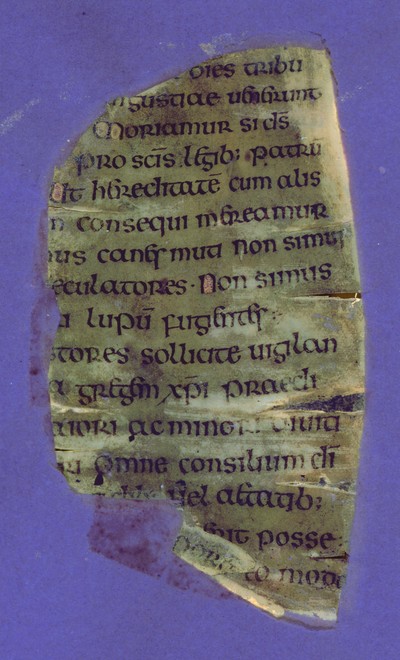 dies tribu
ngustiae uenerunt
Moriamur si ds̄
pro scīs legib; patrū
Ut hereditatē cum alis
n consequi mereamur
nus canes muti non simus
eculatores · Non simus
i lupū fugientes ;
stores sollicite uigilan
a gregem xp̄i praedi
aiori ac minori diuiti
ri Omne consilium di̅
uel aetatib;
erit posse ·
eo modo